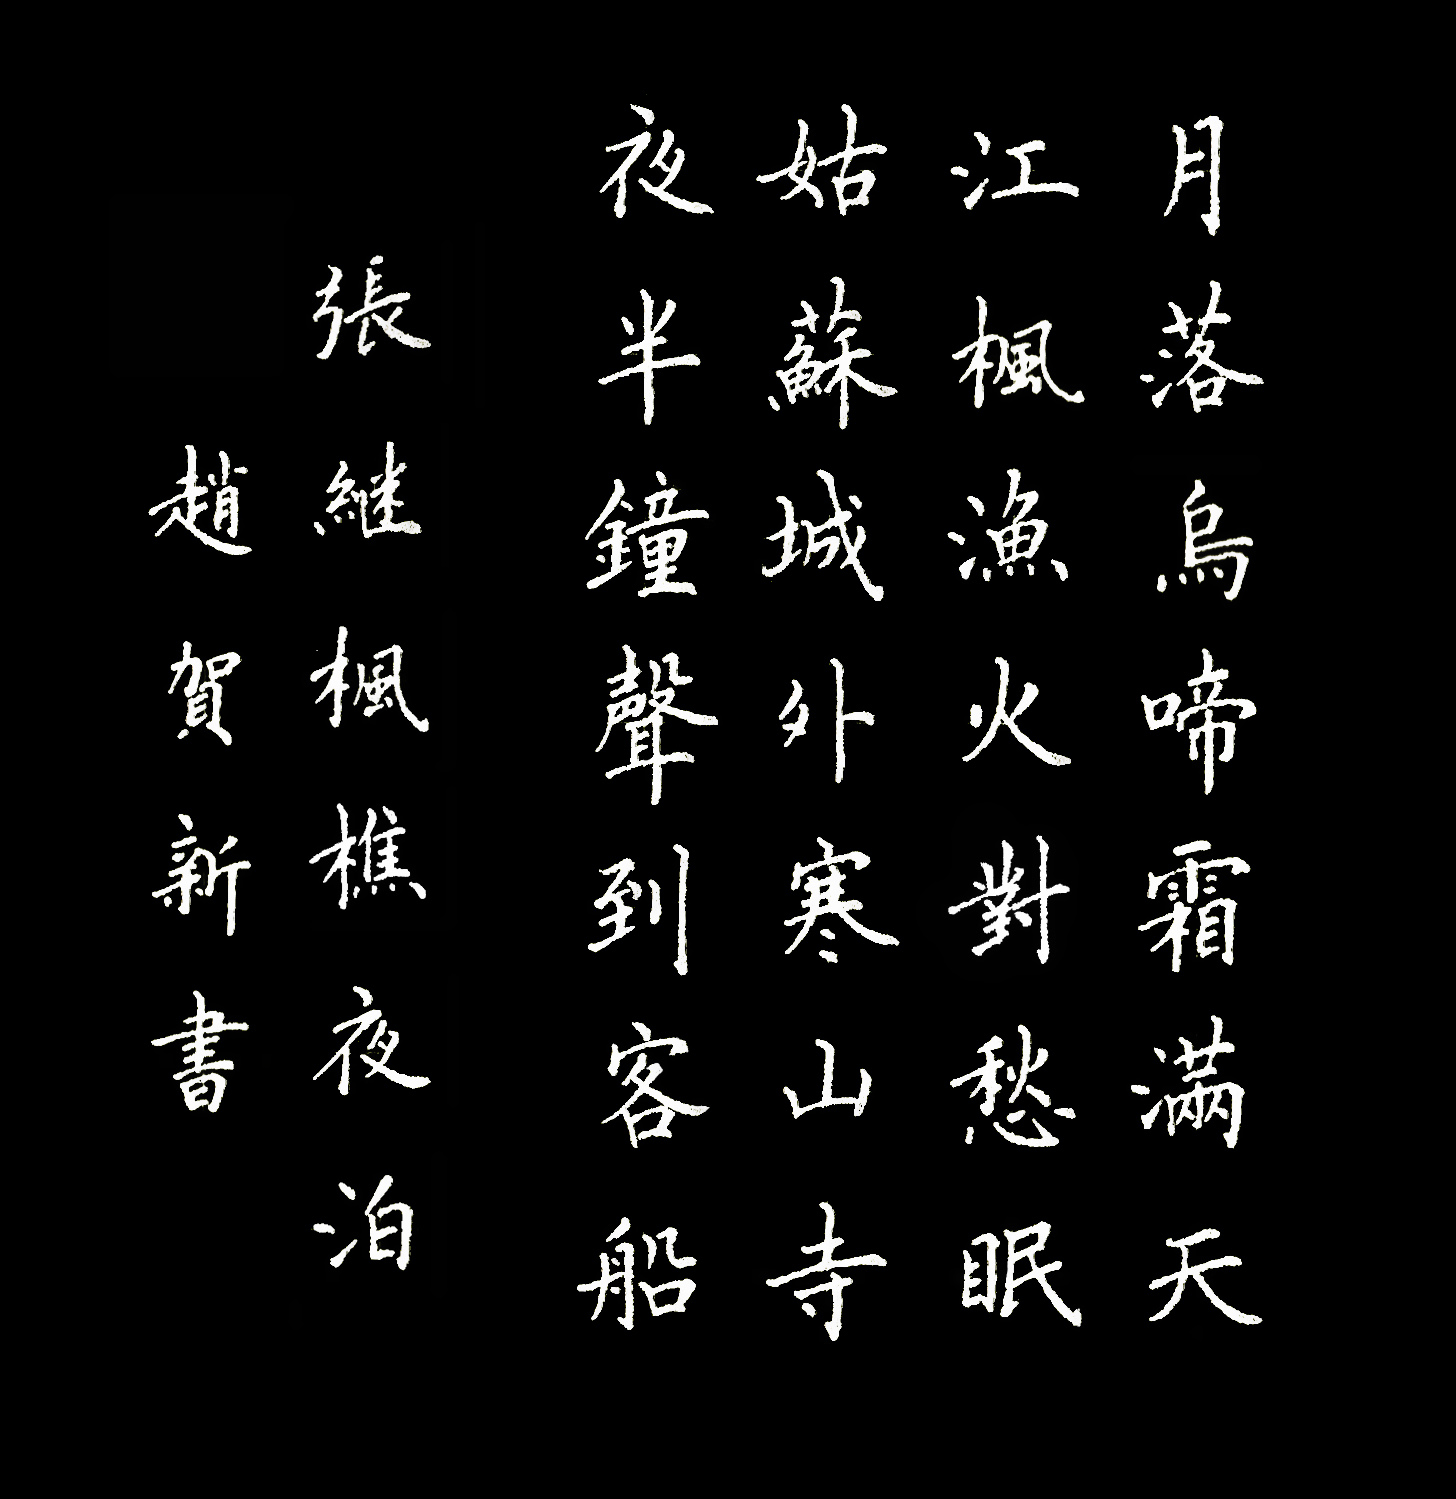 月落烏啼霜滿天
江楓漁火對愁眠
姑蘇城外寒山寺
夜半鐘聲到客船
張継楓樵夜泊
趙賀新書